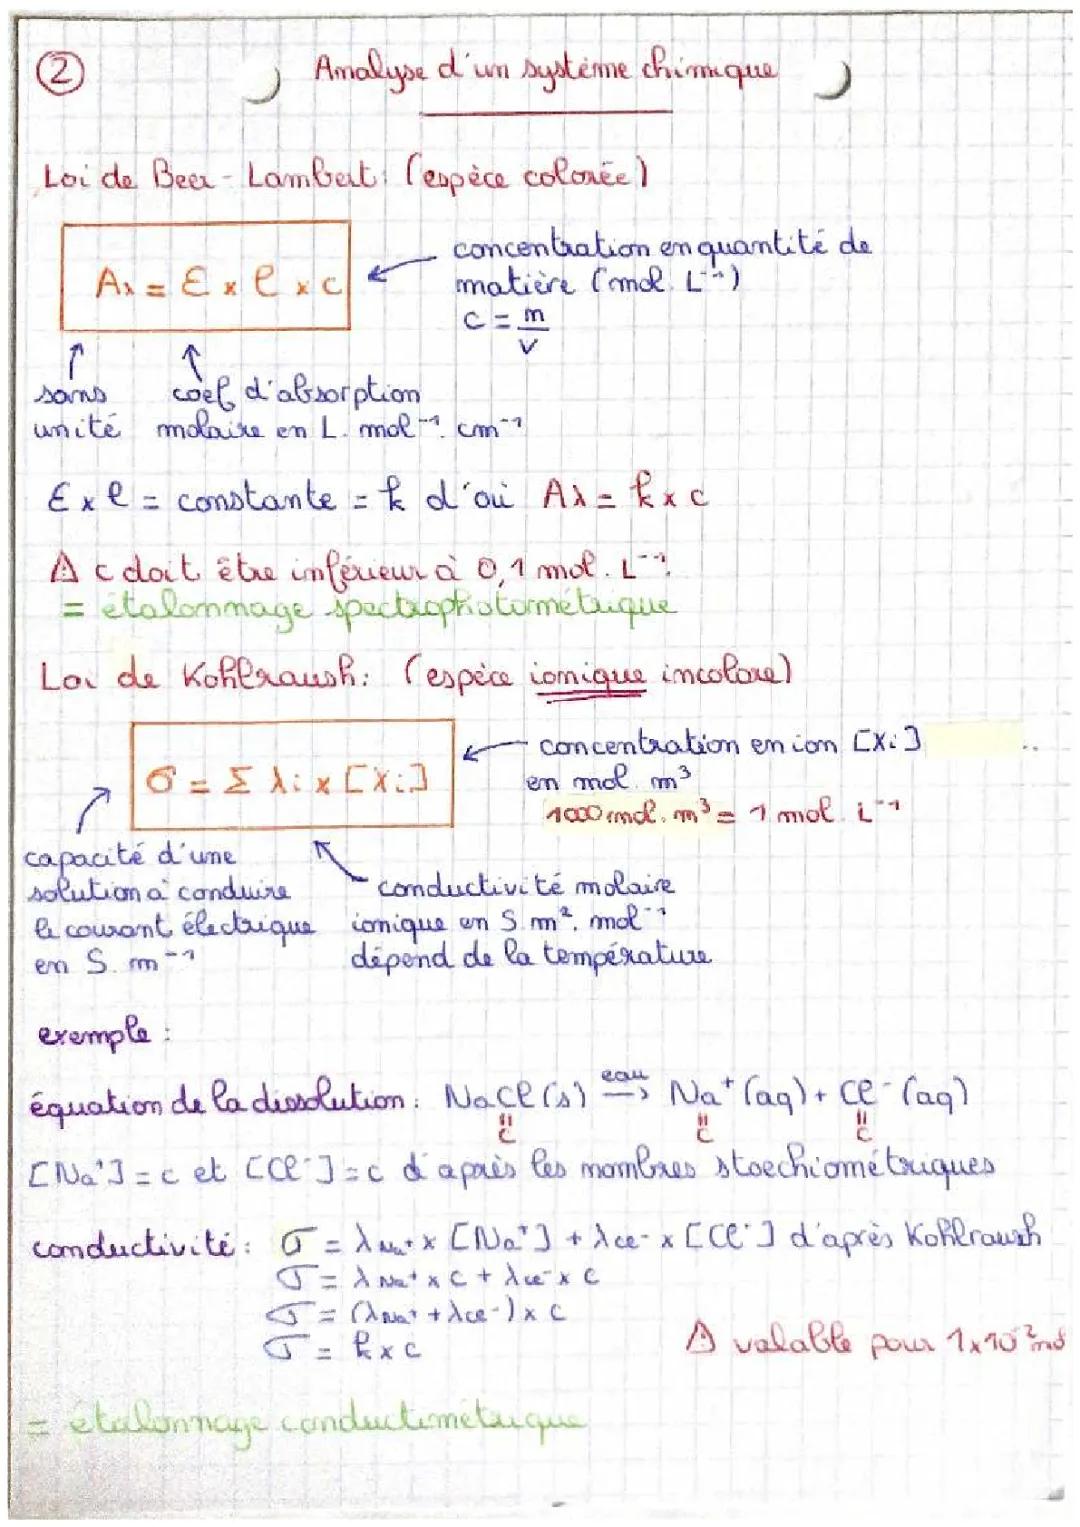 2
Analyse d'un système chimique
Loi de Beer-Lambert: (espèce colorée)
Aλ = Ɛ x l x c
concentration en quantité de
matière (mol. L⁻¹)
c = n/V
sans
unité
coef d'absorption
molaire en L. mol⁻¹. cm⁻¹
Ɛ x l = constante = k d'où Aλ = k x c
⚠ c doit être inférieur à 0,1 mol. L⁻¹.
= étalonnage spectrophotométrique
Loi de Kohlraush: (espèce ionique incolore)
σ = Σ λi x [Xi]
concentration en ion [Xi]
en mol. m³
1000 mol. m³ = 1 mol. L⁻¹
capacité d'une
solution à conduire
le courant électrique
en S. m⁻¹
conductivité molaire
ionique en S. m². mol⁻¹
dépend de la température
exemple :
équation de la dissolution: NaCl (s) eau → Na⁺ (aq) + Cl⁻ (aq)
= c = c = c
[Na⁺] = c et [Cl⁻] = c d'après les nombres stoechiométriques
conductivité: σ = λNa⁺ x [Na⁺] + λCl⁻ x [Cl⁻] d'après Kohlraush
σ = λNa⁺ x c + λCl⁻ x c
σ = (λNa⁺ + λCl⁻) x c
σ = k x c
⚠ valable pour 1x10⁻²
= étalonnage conductimétrique